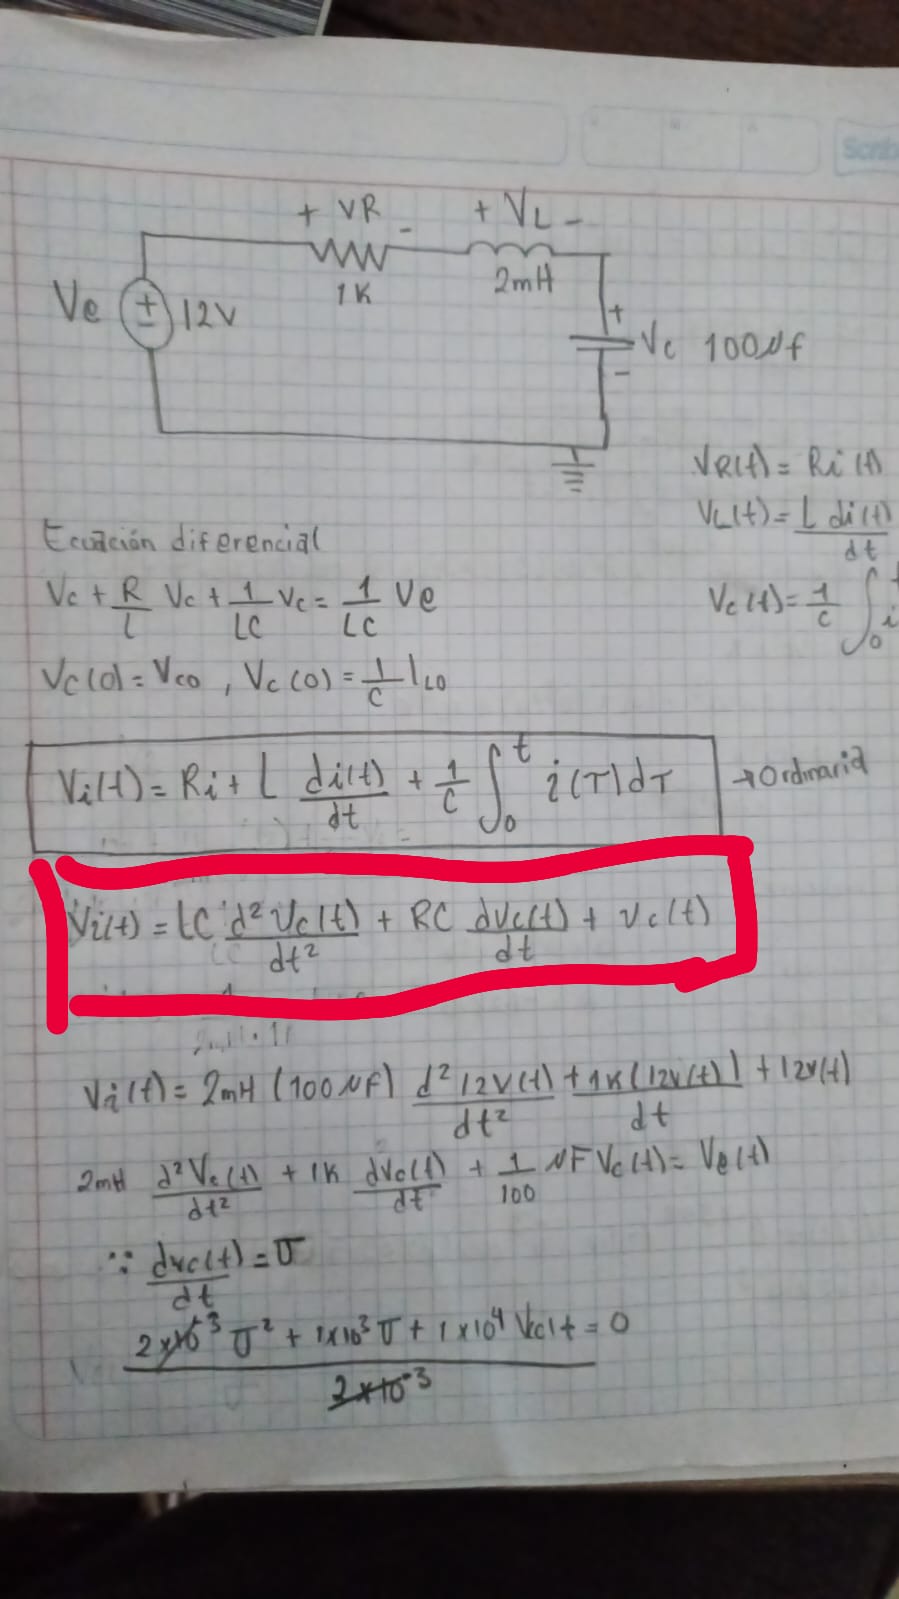 Scrib
+ VR - + VL -
1K 2mH
Ve 12V
+ Vc 100μf -
VR(t) = Ri(t)
VL(t) = L di(t)/dt
Ecuación diferencial
Vc + R/L Vc + 1/LC Vc = 1/LC Ve
Vc(t) = 1/C ∫₀ᵗ i
Vc(0) = Vco , Vc(0) = 1/C ILO
Vi(t) = Ri + L di(t)/dt + 1/C ∫₀ᵗ i(τ)dτ → Ordinaria
Vi(t) = LC d² Vc(t)/dt² + RC dVc(t)/dt + Vc(t)
Vi(t) = 2mH (100μF) d² 12V(t)/dt² + 1K(12V(t))/dt + 12V(t)
2mH d²Vc(t)/dt² + 1K dVc(t)/dt + 1/100 μF Vc(t) = Ve(t)
∵ dvc(t)/dt = U
2x10⁻³ U² + 1x10³ U + 1x10⁴ Vc(t = 0
2x10⁻³